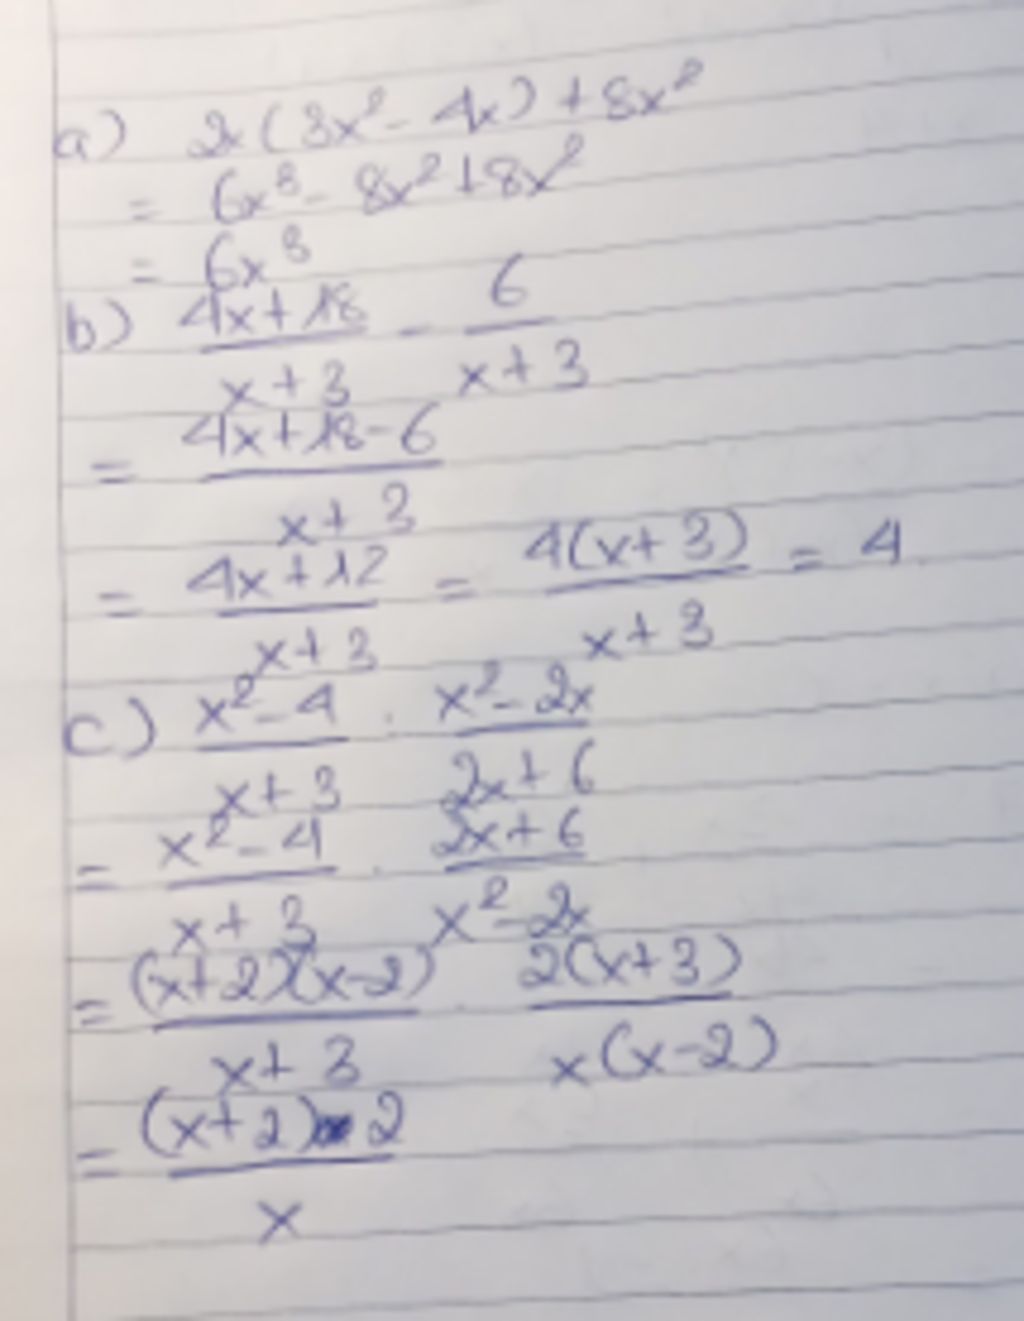 a) 2x(3x² - 4x) + 8x²
= 6x³ - 8x² + 8x²
= 6x³
b) (4x+18)/(x+3) - 6/(x+3)
= (4x+18-6)/(x+3)
= (4x+12)/(x+3) = 4(x+3)/(x+3) = 4
c) (x²-4)/(x+3) : (x²-2x)/(2x+6)
= (x²-4)/(x+3) . (2x+6)/(x²-2x)
= (x+2)(x-2)/(x+3) . 2(x+3)/x(x-2)
= (x+2) 2/x